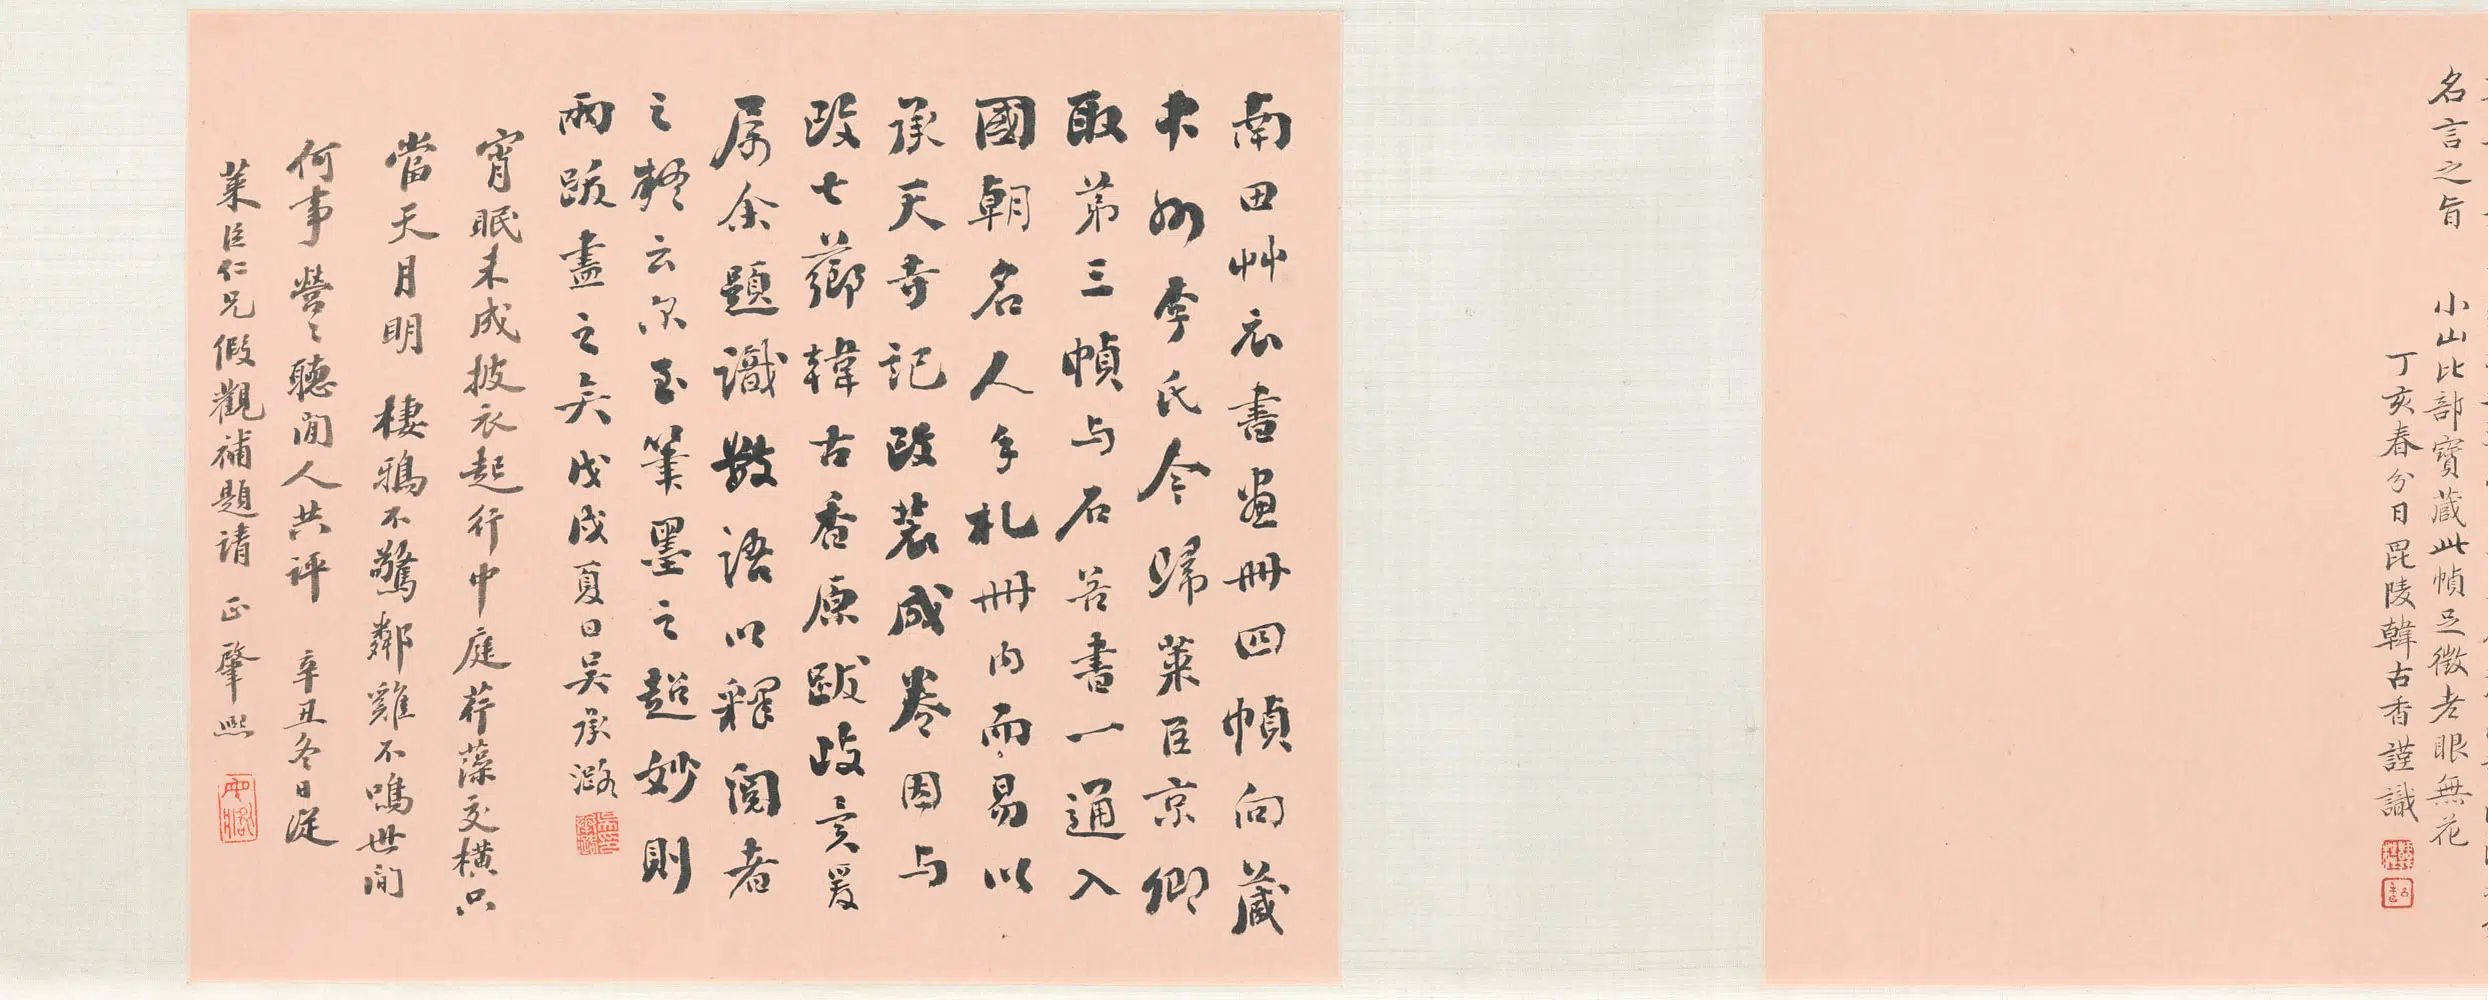 名言之旨 小山比部寶藏此幀足徵老眼無花
丁亥春分日毘陵韓古香謹識
南田艸衣書畫冊四幀向藏
中州李氏今歸萊臣京卿
取第三幀与石谷書一通入
國朝名人手札冊内而易以
承天寺記改裝成卷因与
改七薌韓古香原跋歧異爰
属余題識數語以釋閱者
之疑云尔至筆墨之超妙則
兩跋盡之矣戊戌夏日吳承潞
宵眠未成披衣起行中庭荇藻交橫只
當天月明 棲鴉不驚鄰雞不鳴世間
何事營〻聽閒人共評 辛丑冬日從
萊臣仁兄假觀補題請 正 肇熙